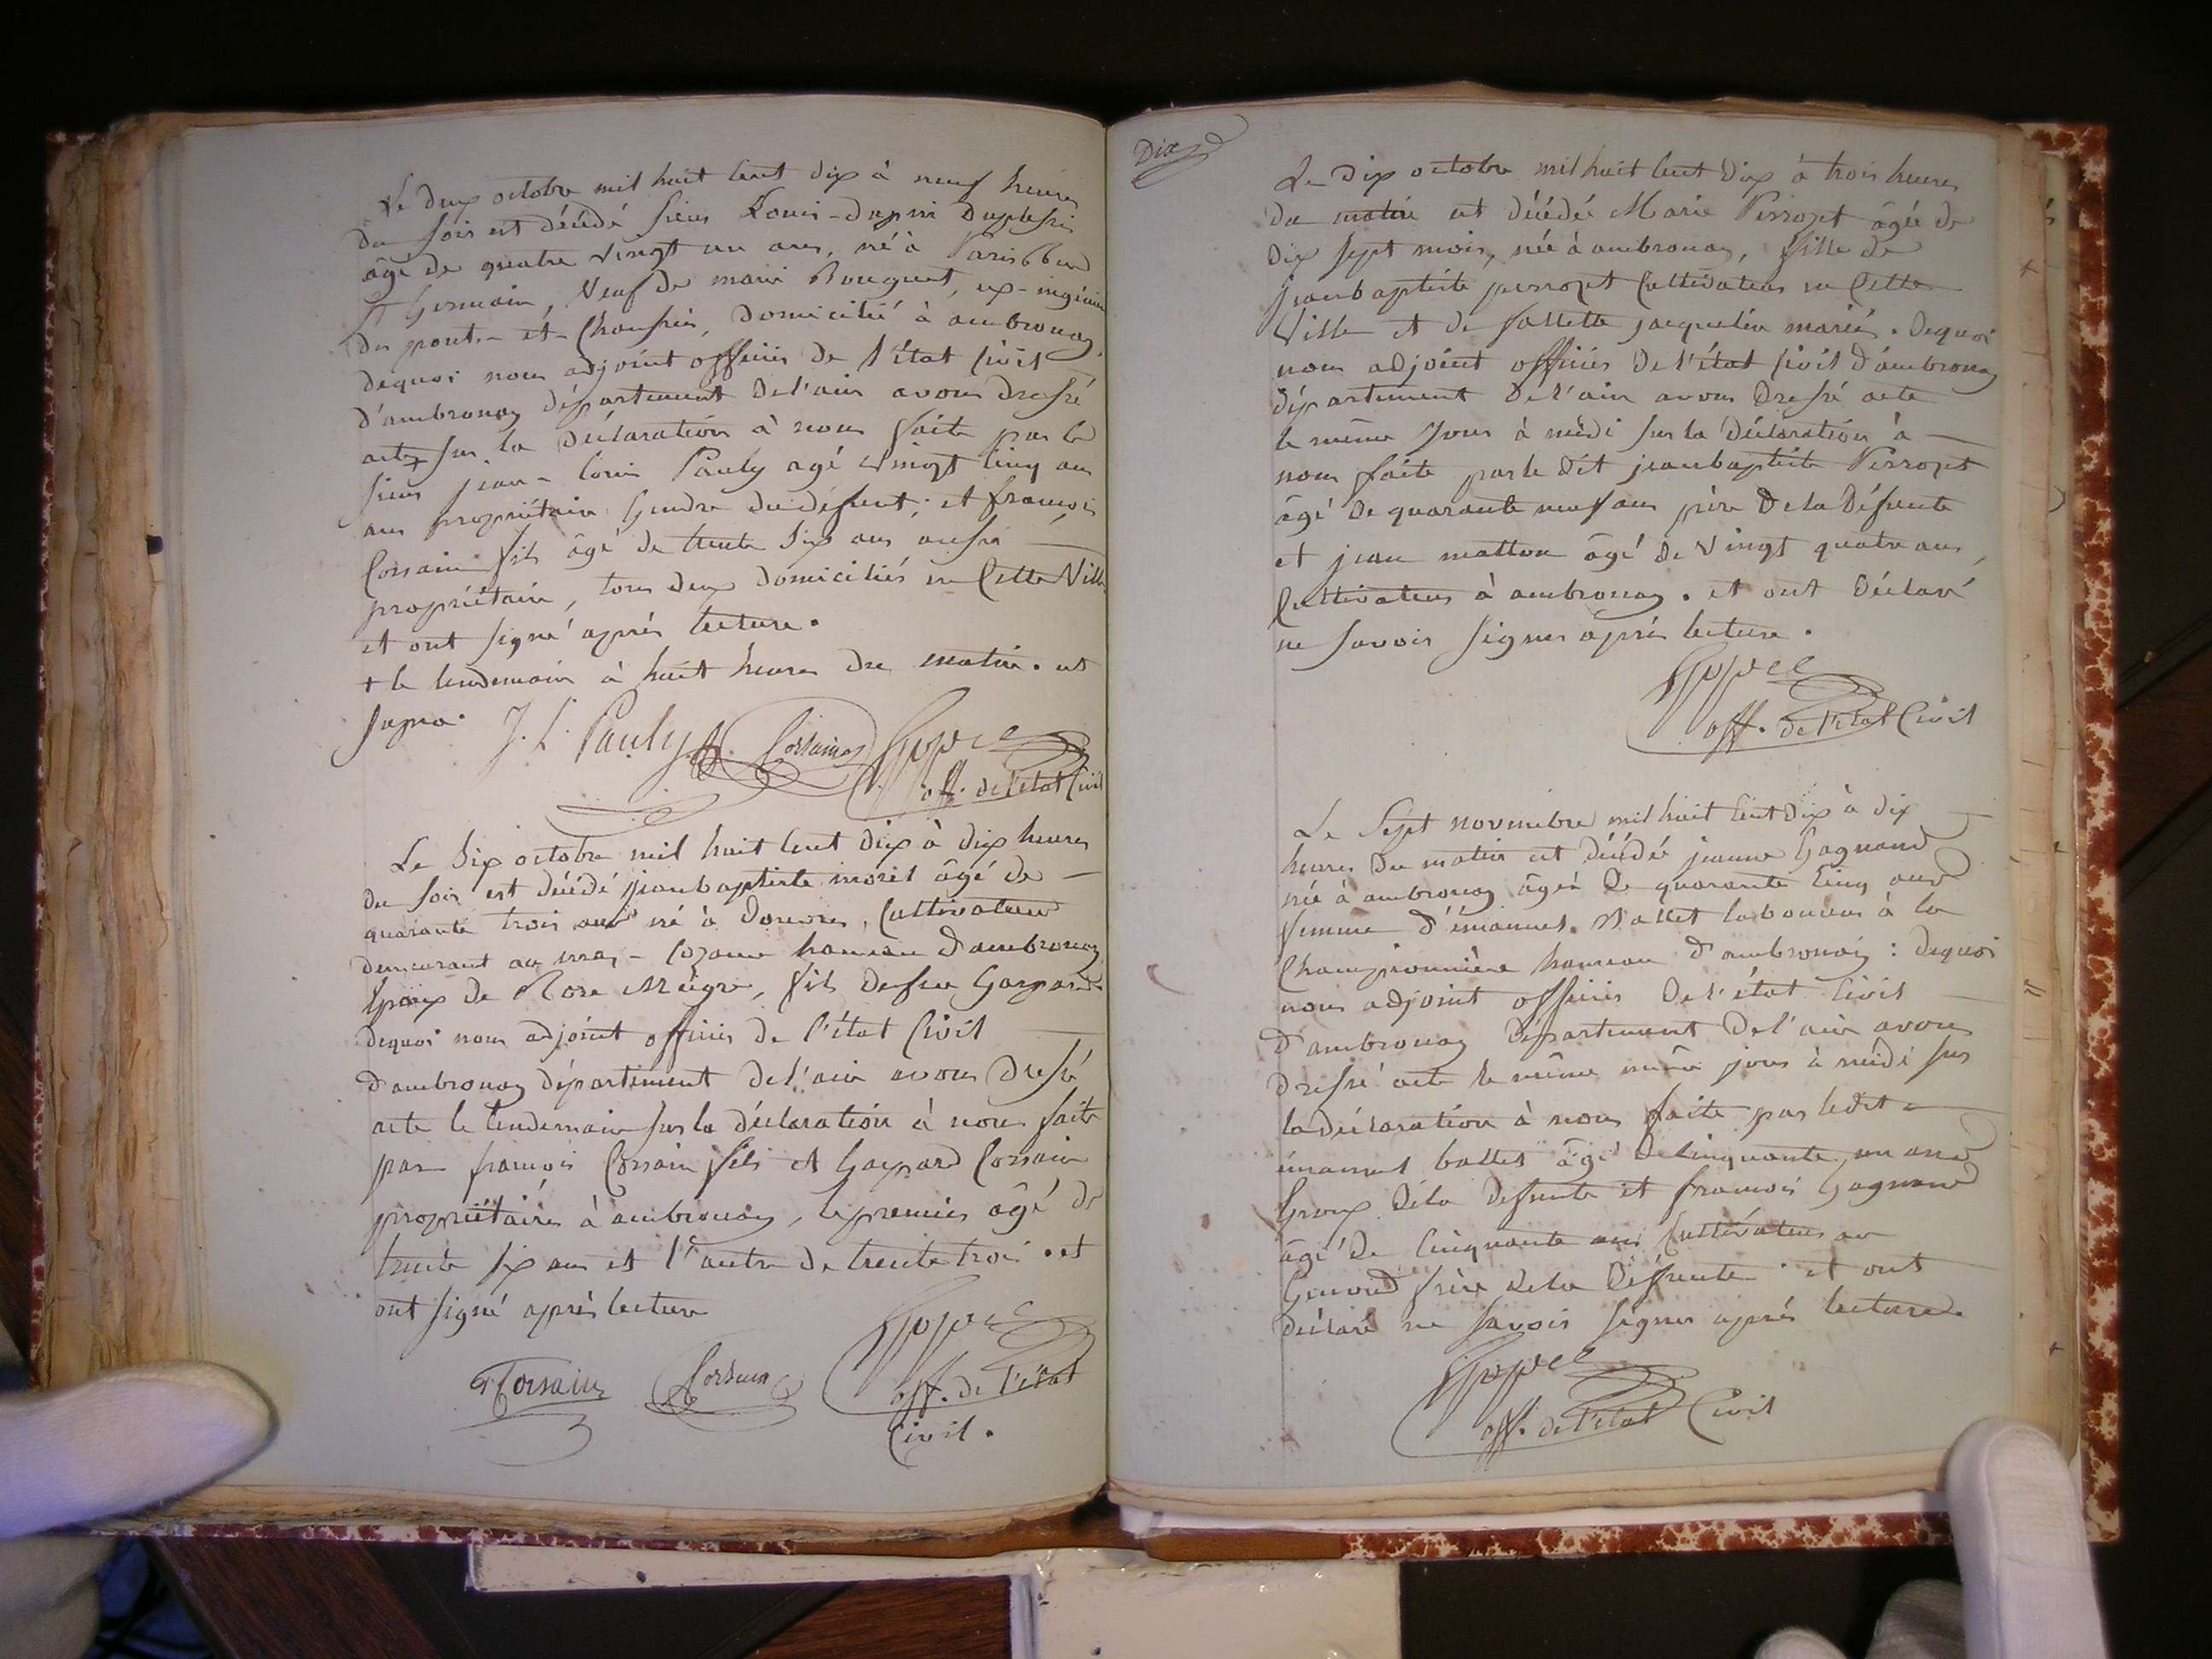 Le deux octobre mil huit cent dix à neuf heures
du soir est décédé sieur Louis-dupin Duplessis
âgé de quatre vingt un ans, né à Paris
St Germain, Veuf de marie Bouquet, ex-ingénieur
des ponts-et-Chaussées, domicilié à ambronay.
dequoi nous adjoint officier de l'état Civil
d'ambronay département de l'ain avons dressé
acte + sur la déclaration à nous faite par le
sieur jean-louis Pauly agé vingt cinq ans
ans propriétaire Gendre du défunt; et françois
Corsain fils âgé de trente six ans aussi
propriétaire, tous deux domiciliés en Cette Ville
et ont signé après lecture.
+ le lendemain à huit heures du matin. ut
supra. J. L. Pauly Corsain
off. de l'état Civil
Le Six octobre mil huit cent dix à dix heures
du soir est décédé jeanbaptiste morel âgé de
quarante trois ans né à Douvres, Cultivateur
demeurant au hameau d'ambronay
Epoux de Rose Mégre, fils de feu Gaspard
dequoi nous adjoint officier de l'état Civil
d'ambronay département de l'ain avons dressé
acte le lendemain sur la déclaration à nous faite
par françois Corsain fils et Gaspard Corsain
propriétaires à ambronay, le premier âgé de
trente six ans et l'autre de trente trois. et
ont signé après lecture
Corsain Corsain off. de l'état
Civil.
Dix
Le Dix octobre mil huit cent Dix à trois heures
du matin est décédée Marie Perrozet âgée de
Dix sept mois, née à ambronay, fille de
jeanbaptiste perrozet Cultivateur en Cette
Ville et de jacqueline mariés. Dequoi
nous adjoint officier de l'état Civil d'ambronay
département de l'ain avons dressé acte
le même jour à midi sur la déclaration à
nous faite par le dit jeanbaptiste Perrozet
âgé de quarante neuf ans père de la Défunte
et jean matton âgé de vingt quatre ans,
Cultivateur à ambronay. et ont Déclaré
ne savoir signer après lecture.
off. de l'état Civil
Le Sept novembre mil huit cent Dix à dix
heures du matin est décédée jeanne Gagnand
née à ambronay âgée de quarante Cinq ans
femme d'émanuel. Vallet laboureur à la
Championnière hameau d'ambronay: dequoi
nous adjoint officier de l'état Civil
d'ambronay Département de l'ain avons
dressé acte le même même jour à midi sur
la déclaration à nous faite par ledit
émanuel ballet âgé de Cinquante un ans
Epoux de la défunte et françois Gagnand
âgé de Cinquante ans Cultivateur au
Genoud frère de la Défunte et ont
déclaré ne savoir signer après lecture.
off. de l'état Civil